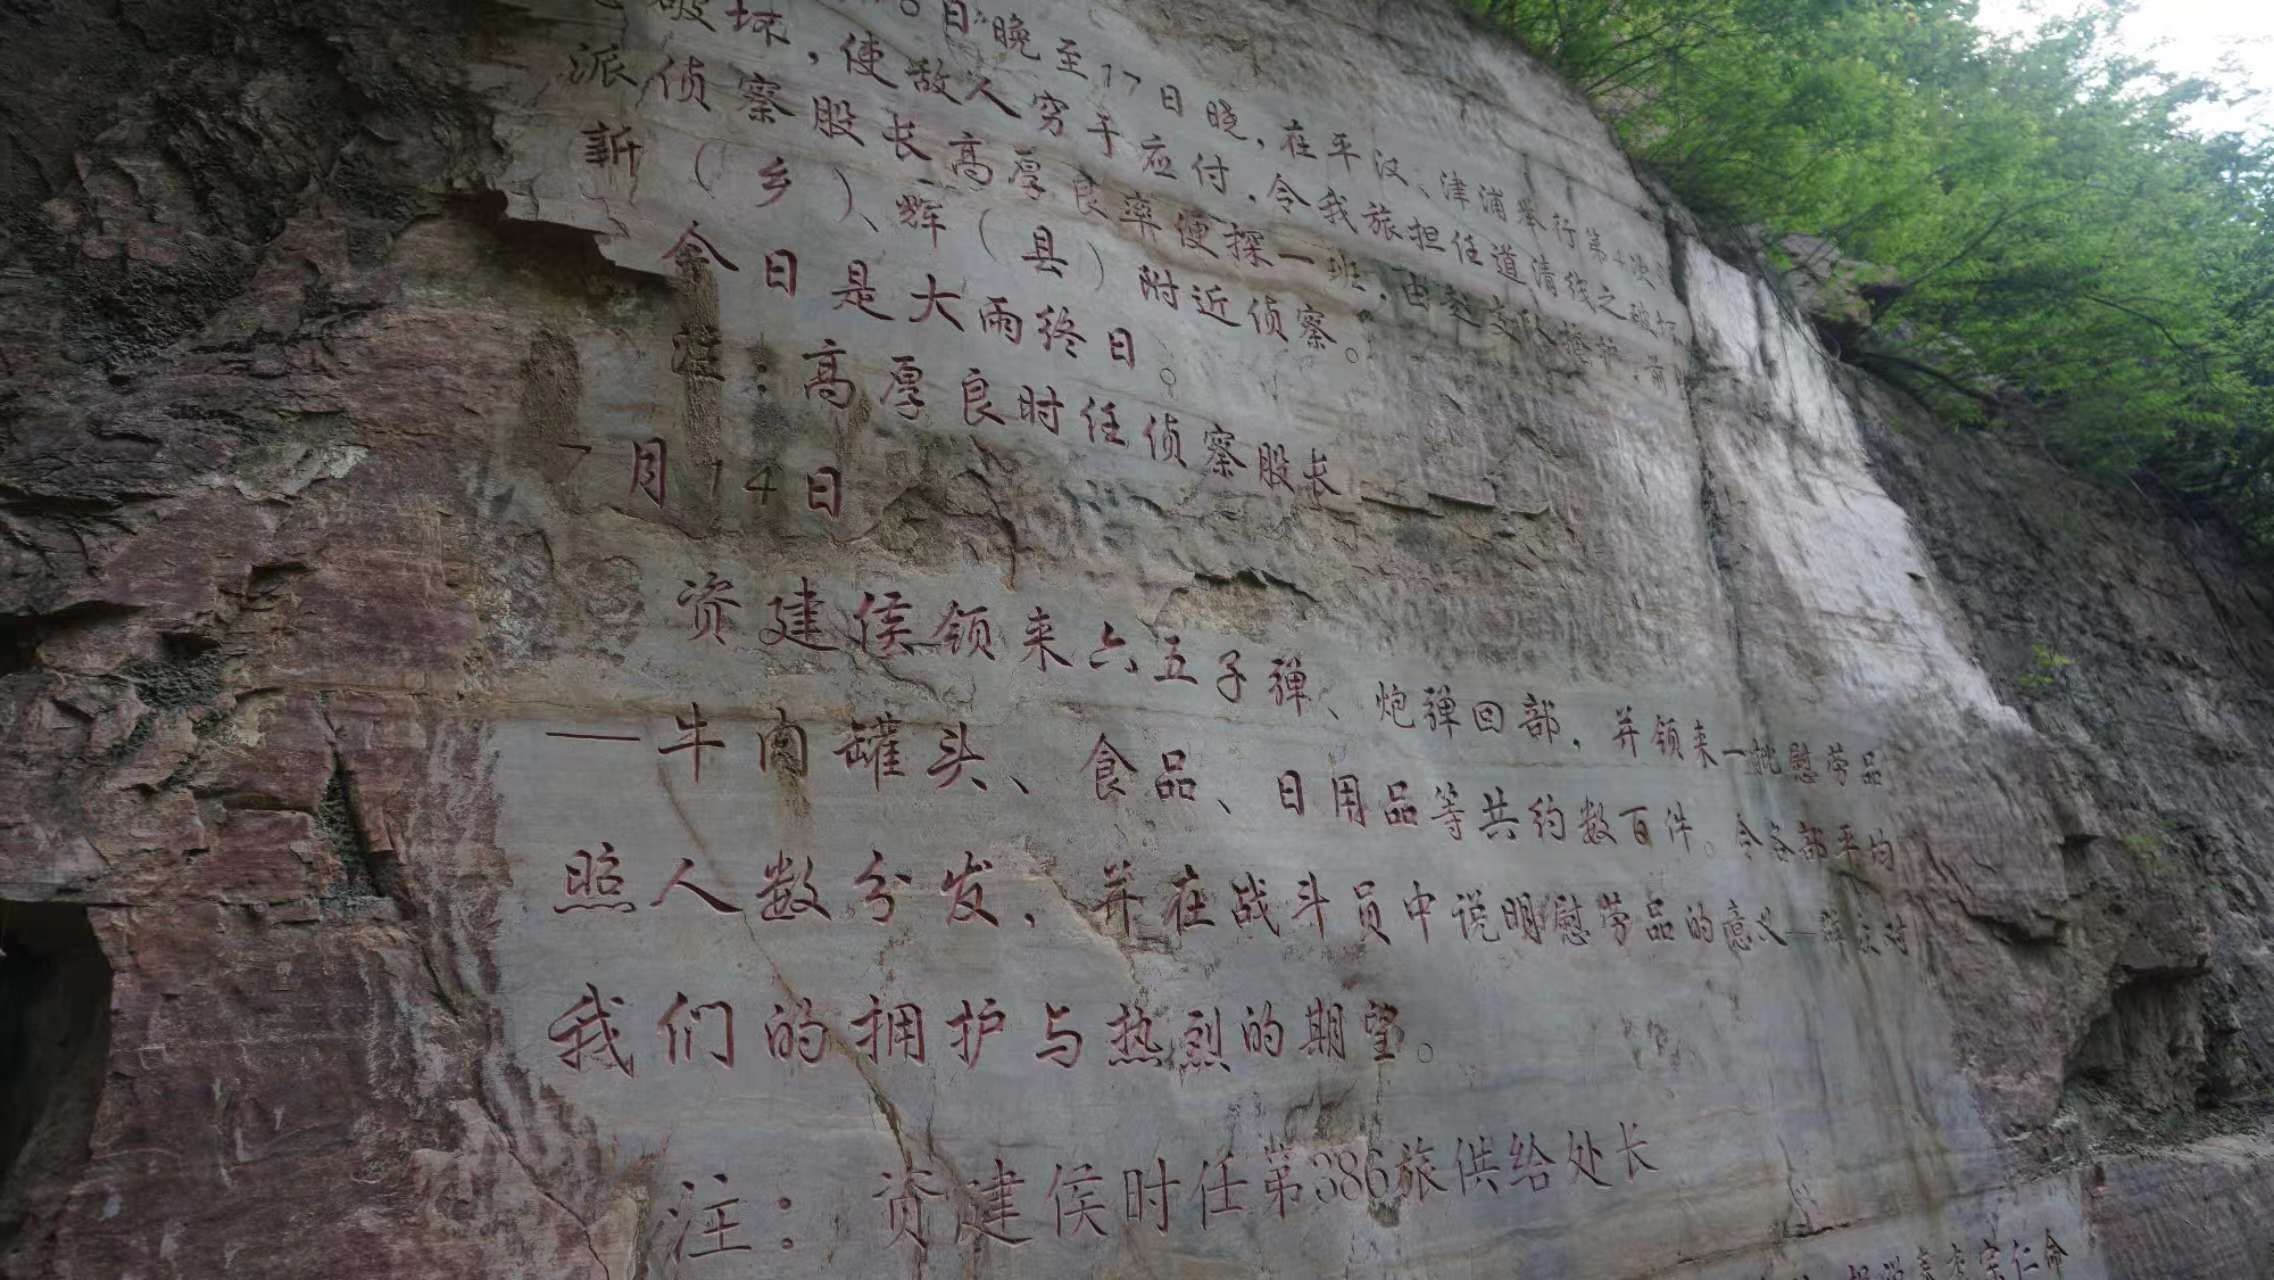 日晚至17日晚，在平汉、津浦举行第4次
破坏，使敌人穷于应付，令我旅担任道清线之破坏
派侦察股长高厚良率便探一班，由赵支队掩护，前
新（乡）、辉（县）附近侦察。
今日是大雨终日。
注：高厚良时任侦察股长
7月14日
资建侯领来六五子弹、炮弹回部，并领来一批慰劳品
——牛肉罐头、食品、日用品等共约数百件。令各部平均
照人数分发，并在战斗员中说明慰劳品的意义—群众对
我们的拥护与热烈的期望。
注：资建侯时任第386旅供给处长
宗仁命